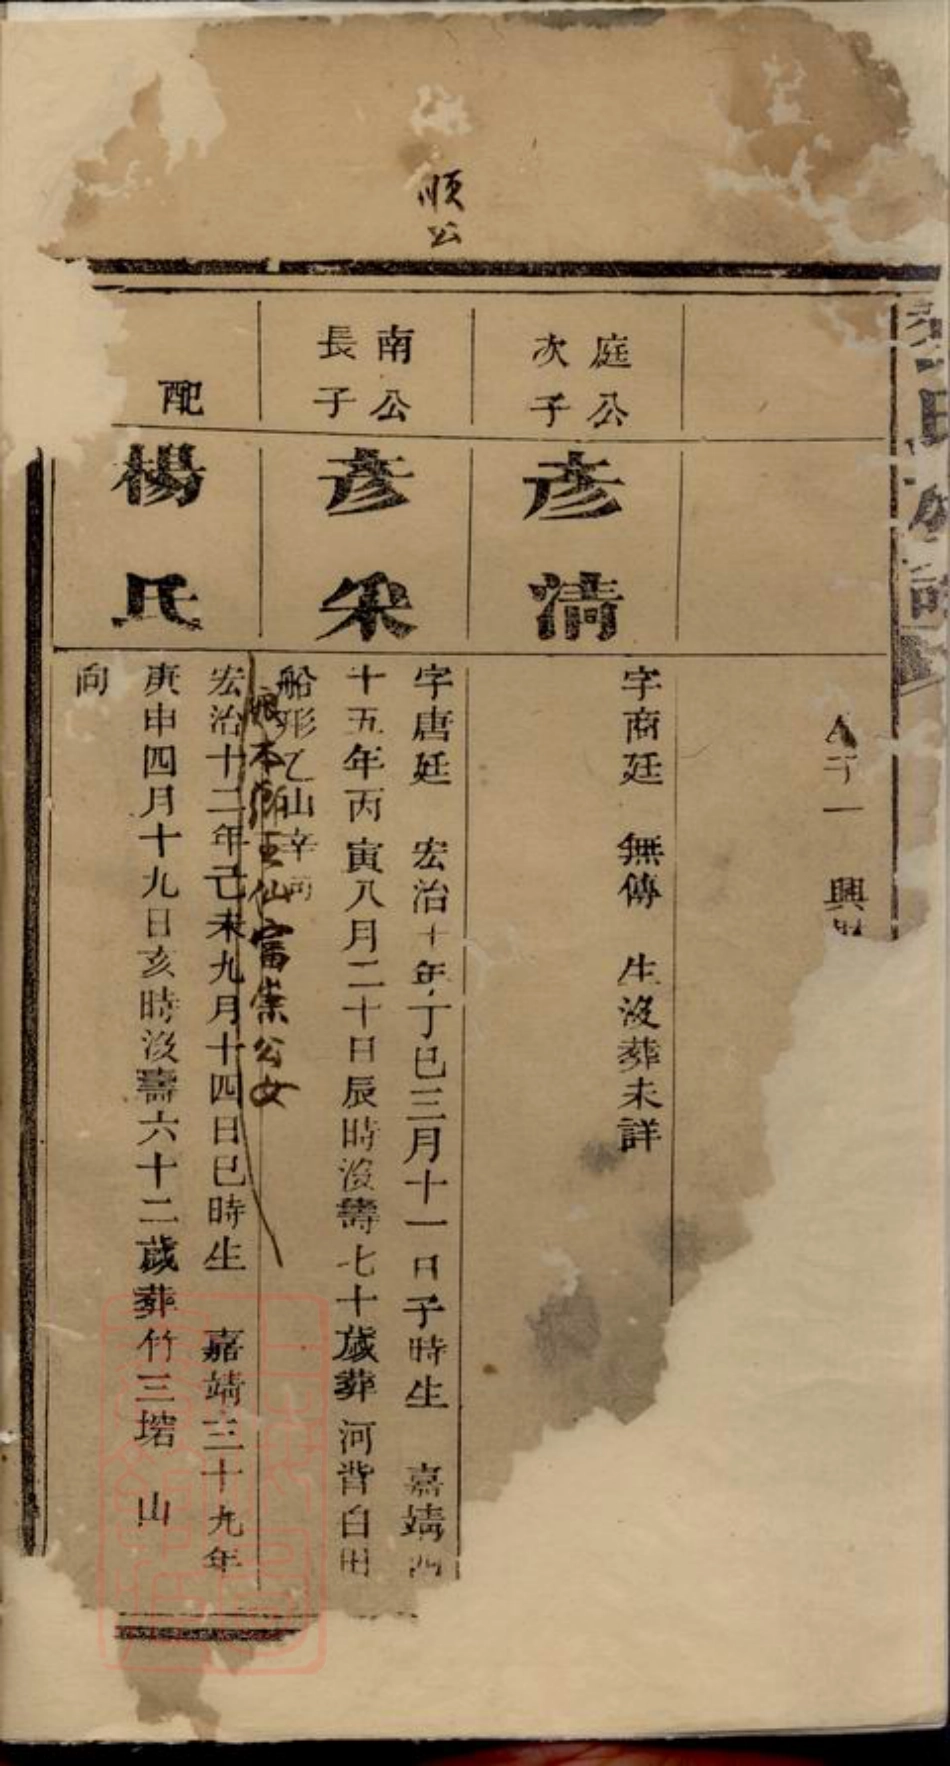 順公
庭公
次子
彦清
字商廷　無傳　生沒葬未詳
南公
長子
彦采
字唐廷　宏治十年丁巳三月十一日子時生　嘉靖四
十五年丙寅八月二十日辰時沒壽七十歲葬河背白田
船形乙山辛向
配
楊氏
仙富崇公女
宏治十二年己未九月十四日巳時生　嘉靖三十九年
庚申四月十九日亥時沒壽六十二歲葬竹三塔　山
向
興